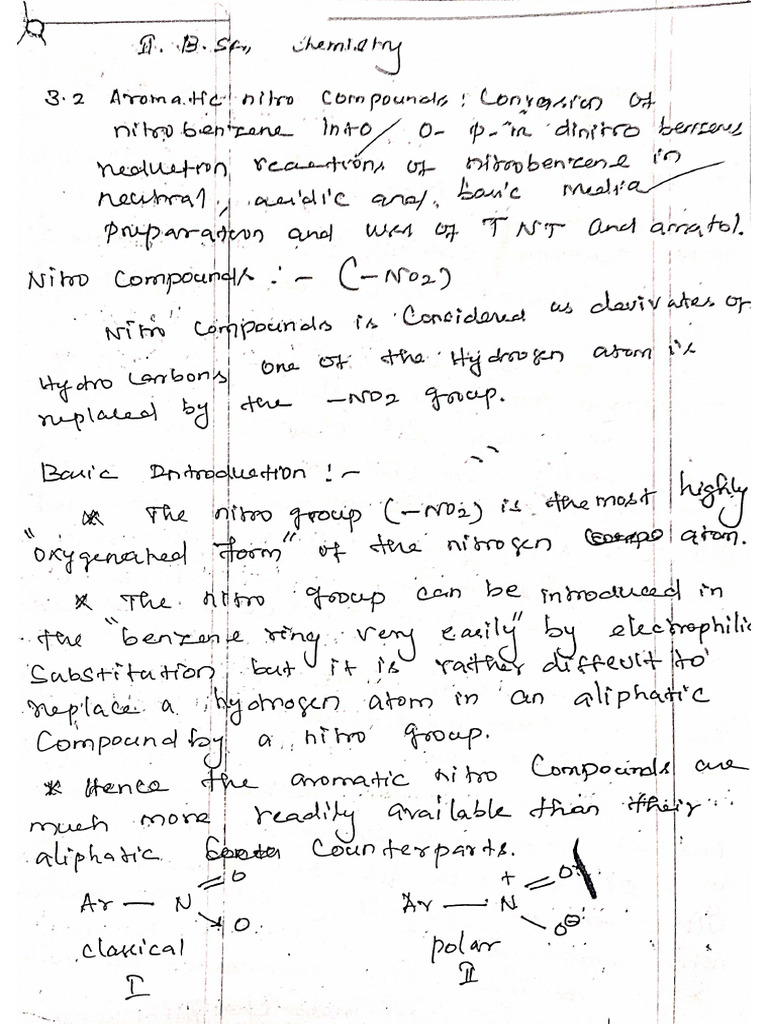 II. B. Sc., Chemistry
3.2 Aromatic nitro compounds: Conversion of
nitrobenzene into o- p- m dinitro benzene
reduction reactions of nitrobenzene in
neutral, acidic and, basic media
preparation and uses of TNT and amatol.
Nitro Compounds :- (-NO2)
Nitro Compounds is Considered as derivates of
Hydro carbons one of the Hydrogen atom is
replaced by the -NO2 group.
Basic Introduction :-
* The nitro group (-NO2) is the most highly
"oxygenated form" of the nitrogen atom.
* The nitro group can be introduced in
the "benzene ring very easily" by electrophilic
Substitution but it is rather difficult to
replace a hydrogen atom in an aliphatic
Compound by a nitro group.
* Hence the aromatic nitro Compounds are
much more readily available than their
aliphatic Counterparts.
Ar — N =O →O Ar — N+ =O — O⊖
classical polar
I II